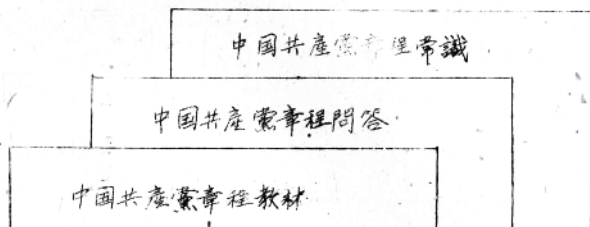 中国共產黨章程常識
中国共產黨章程問答
中国共產黨章程教材